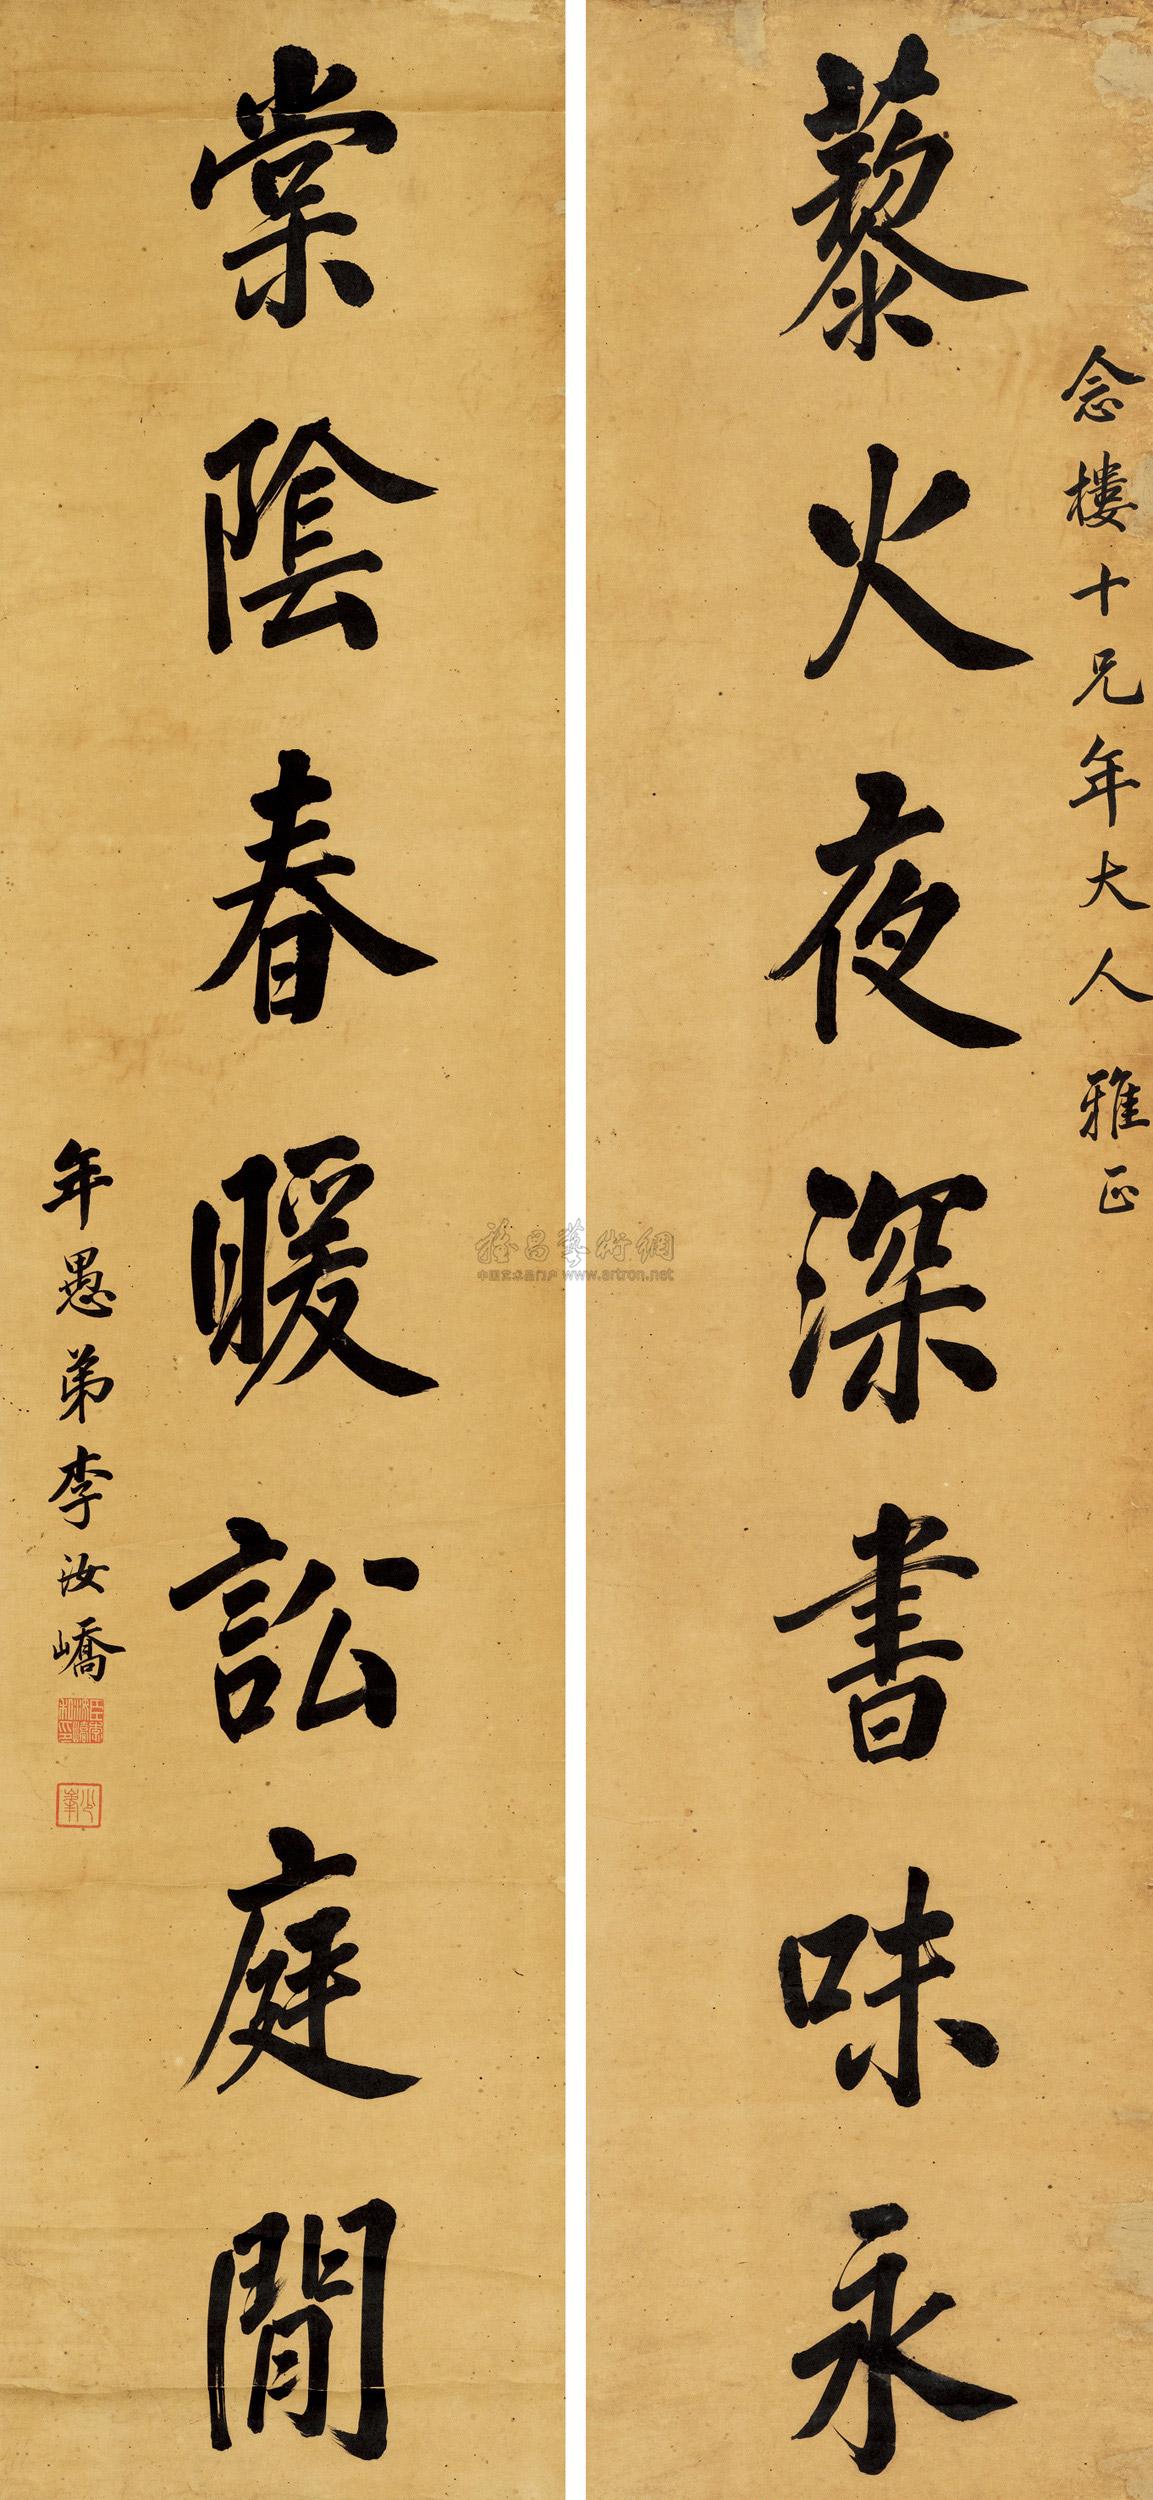 念樓十兄年大人雅正
藜火夜深書味永
棠陰春暖訟庭閒
年愚弟李汝嶠
雅昌藝術網
中国艺术品门户 www.artron.net